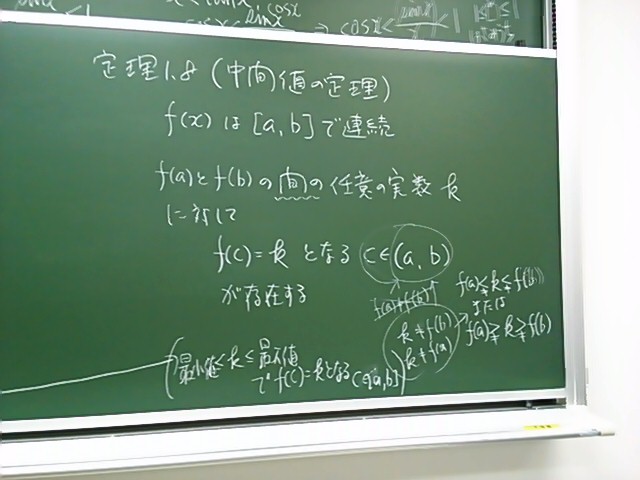 cosx < sinx/x < 1
定理1.8 (中間値の定理)
f(x) は [a,b] で連続
f(a)とf(b)の間の任意の実数 k
に対して
f(c)=k となる c∈(a,b)
が存在する
f(a)≠f(b)
k≠f(b)
k≠f(a)
f(a)≨k≨f(b)
または
f(a)≩k≩f(b)
(最小値≤k≤最大値
で f(c)=kとなる c∈[a,b])